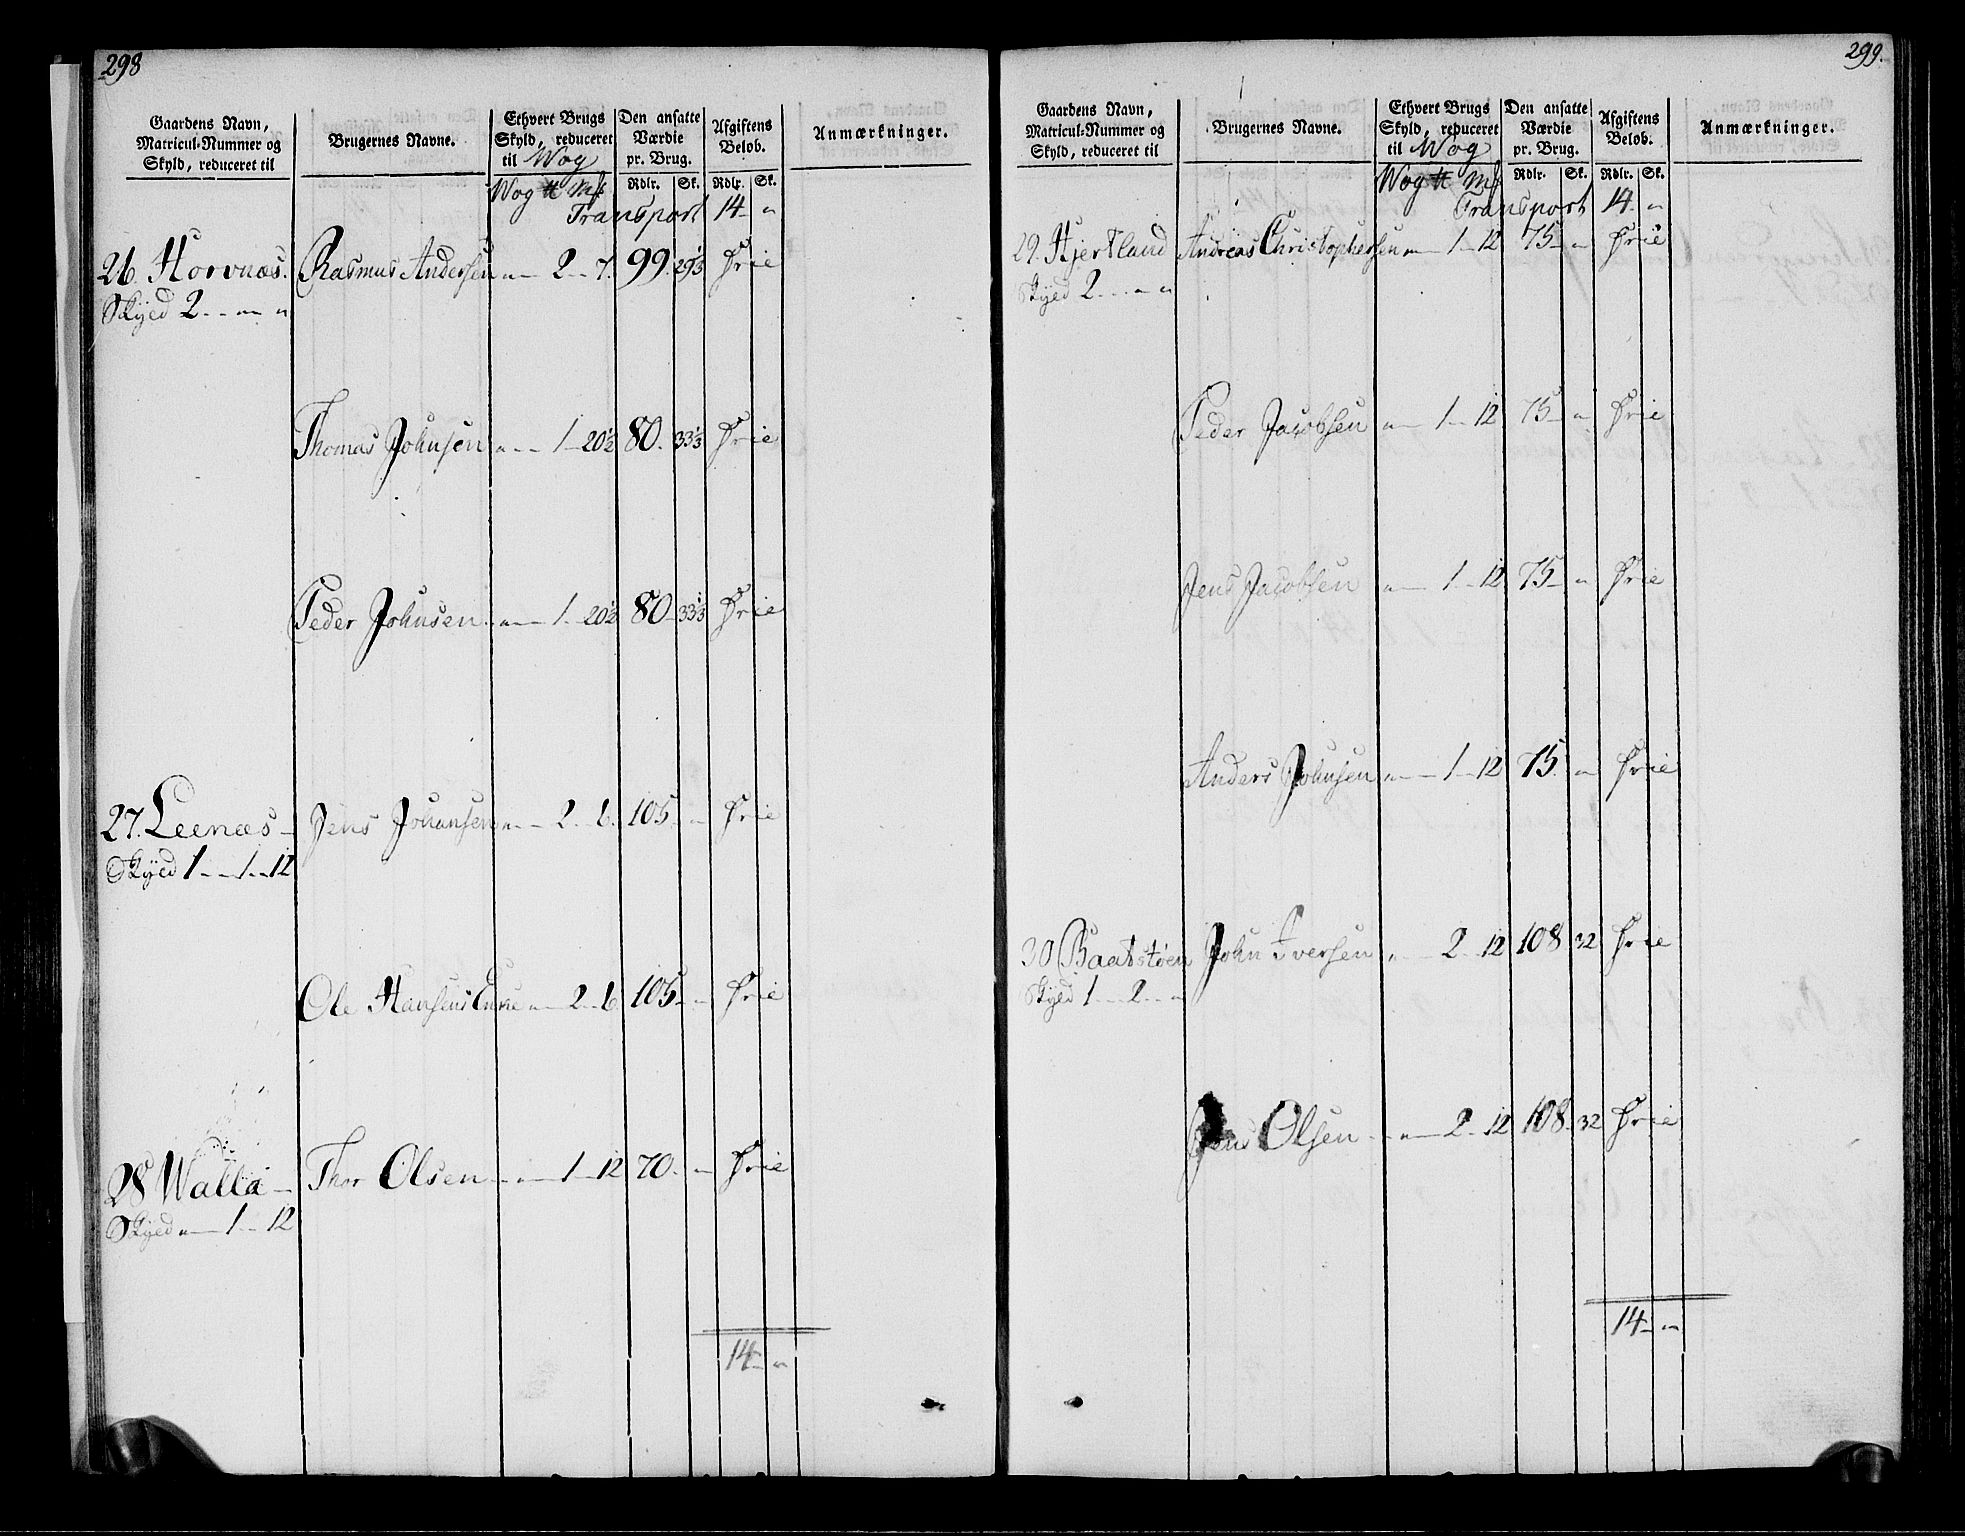 298
Gaardens Navn, Matricul-Nummer og Skyld, reduceret til
Brugernes Navne.
Ethvert Brugs Skyld, reduceret til Wog
Den ansatte Værdie pr. Brug.
Afgiftens Beløb.
Anmærkninger.
Wog ℔ Mk Rdlr. Sk. Rdlr. Sk.
Transport 14 - "
26. Horvnæs. Rasmus Andersen " - 2 - 7. 99. 29⅓ Frie
Skyed 2 - - " - "
Thomas Johnsen " - - 1 - 20½ 80. 33⅓ Frie
Peder Johnsen " - 1 - 20½ 80 - 33⅓ Frie
27. Leenæs - Jens Johansen " - 2 - 6. 105. - " Frie
Skyed 1 - - 1 - 12
Ole Hansens Enke " - 2 - 6 105 - " Frie
28 Walla - Thor Olsen - " - 1 - 12 70. - " Frie
Skyed " - 1 - 12
14 - "
299.
Gaardens Navn, Matricul-Nummer og Skyld, reduceret til
Brugernes Navne.
Ethvert Brugs Skyld, reduceret til Wog
Den ansatte Værdie pr. Brug.
Afgiftens Beløb.
Anmærkninger.
Wog ℔ Mk Rdlr. Sk. Rdlr. Sk.
Transport 14 - "
29. Hjertland Andreas Christophersen " - 1 - 12 75 - " Frie
Skyed 2 - - " - "
Peder Jacobsen " - 1 - 12 75 - " Frie
Jens Jacobsen " - 1 - 12 75 - " Frie
Anders Johnsen " - 1 - 12 75. - " Frie
30 Baatstøen John Iversen " - 2 - 12 108 32 Frie
Skyed 1 - 2 - "
Jens Olsen - " - 2 - 12 108 - 32 Frie
14 - "